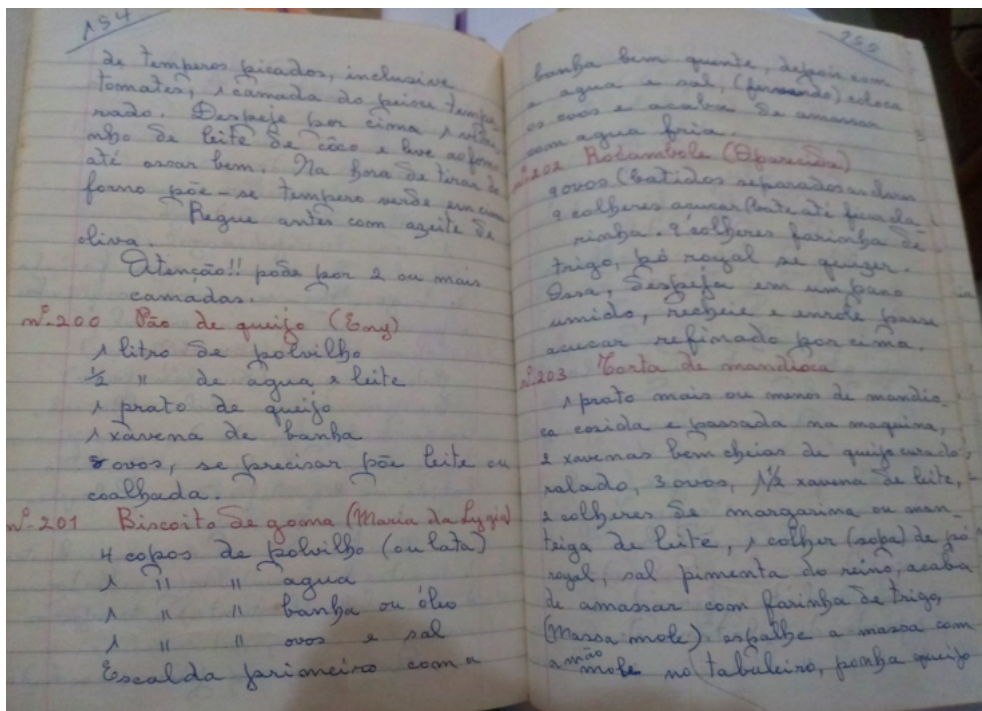 154
de temperos picados, inclusive
tomates, 1 camada do peixe tempe
rado. Despeje por cima 1 vidri
nho de leite de côco e leve ao forno
até assar bem. Na hora de tirar do
forno põe-se tempero verde em cima
Regue antes com azeite de
oliva.
Atenção!! pode por 2 ou mais
camadas.
nº-200 Pão de queijo (Eny)
1 litro de polvilho
½ " de água e leite
1 prato de queijo
1 xavena de banha
ovos, se precisar põe leite ou
coalhada.
nº-201 Biscoito de goma (Maria da Lygia)
4 copos de polvilho (ou lata)
1 " " agua
1 " " banha ou óleo
1 " " ovos e sal
Escalda primeiro com a
155
banha bem quente, depois com
a agua e sal, (fervendo) coloca
os ovos e acaba de amassar
com agua fria.
nº202 Rocambole (Aparecida)
9 ovos (batidos separados as claras
9 colheres acucar (bate até ficar cla
rinha. 9 colheres farinha de
trigo, pó royal se quizer.
Assa, despeja em um pano
umido, recheie e enrole passe
acucar refinado por cima.
nº203 Torta de mandioca
1 prato mais ou menos de mandio
ca cosida e passada na maquina,
2 xavenas bem cheias de queijo curado,
ralado, 3 ovos, 1½ xavena de leite,
2 colheres de margarina ou man-
teiga de leite, 1 colher (sopa) de pó
royal, sal pimenta do reino, acaba
de amassar com farinha de trigo,
(Massa mole). espalhe a massa com
a mão mole no tabuleiro, ponha queijo